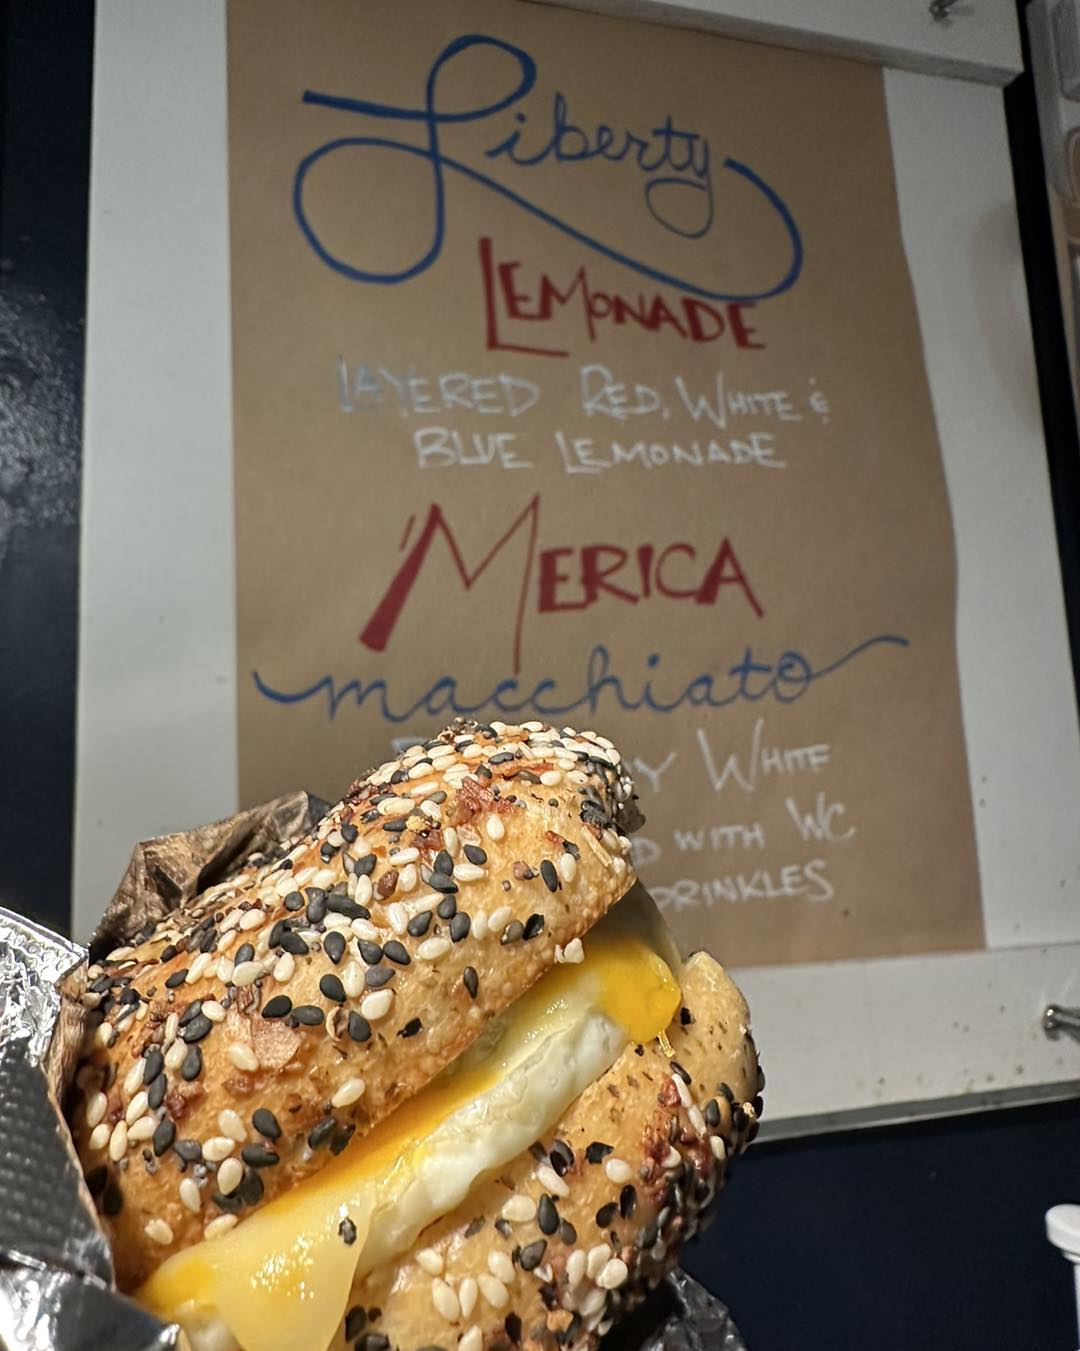 Liberty
LEMONADE
LAYERED RED, WHITE &
BLUE LEMONADE
'MERICA
macchiato
WHITE
WITH WC